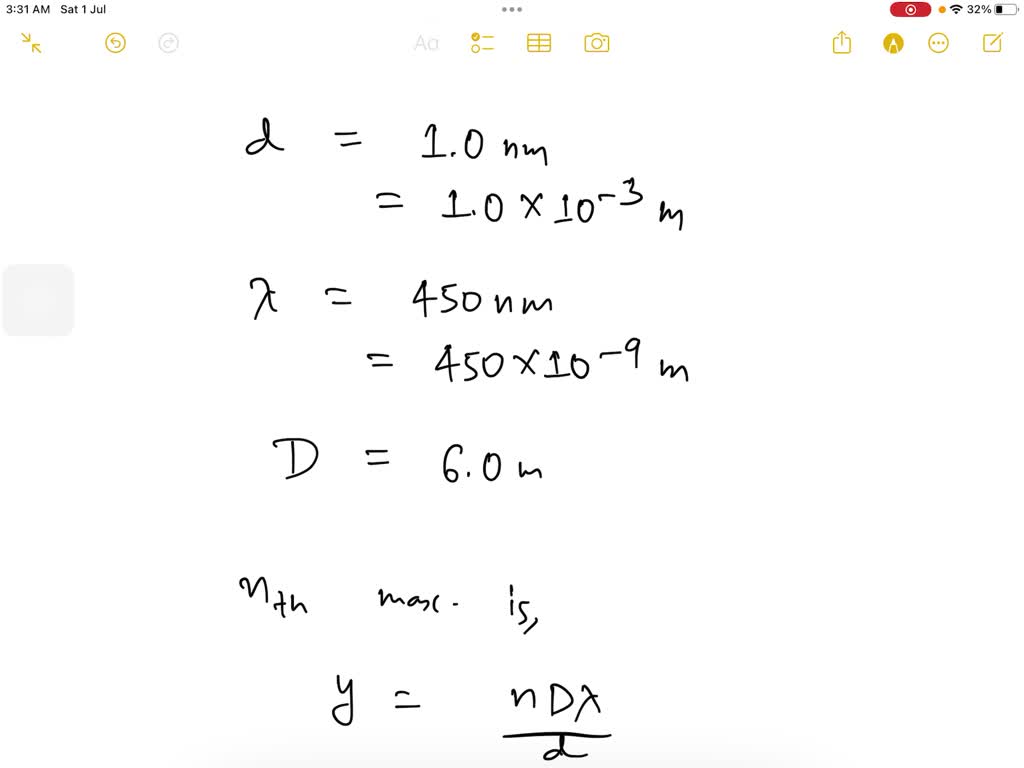 3:31 AM Sat 1 Jul
32%
Aa
d = 1.0 nm
= 1.0 × 10⁻³ m
λ = 450 nm
= 450 × 10⁻⁹ m
D = 6.0 m
nth max. is,
y = nDλ
d